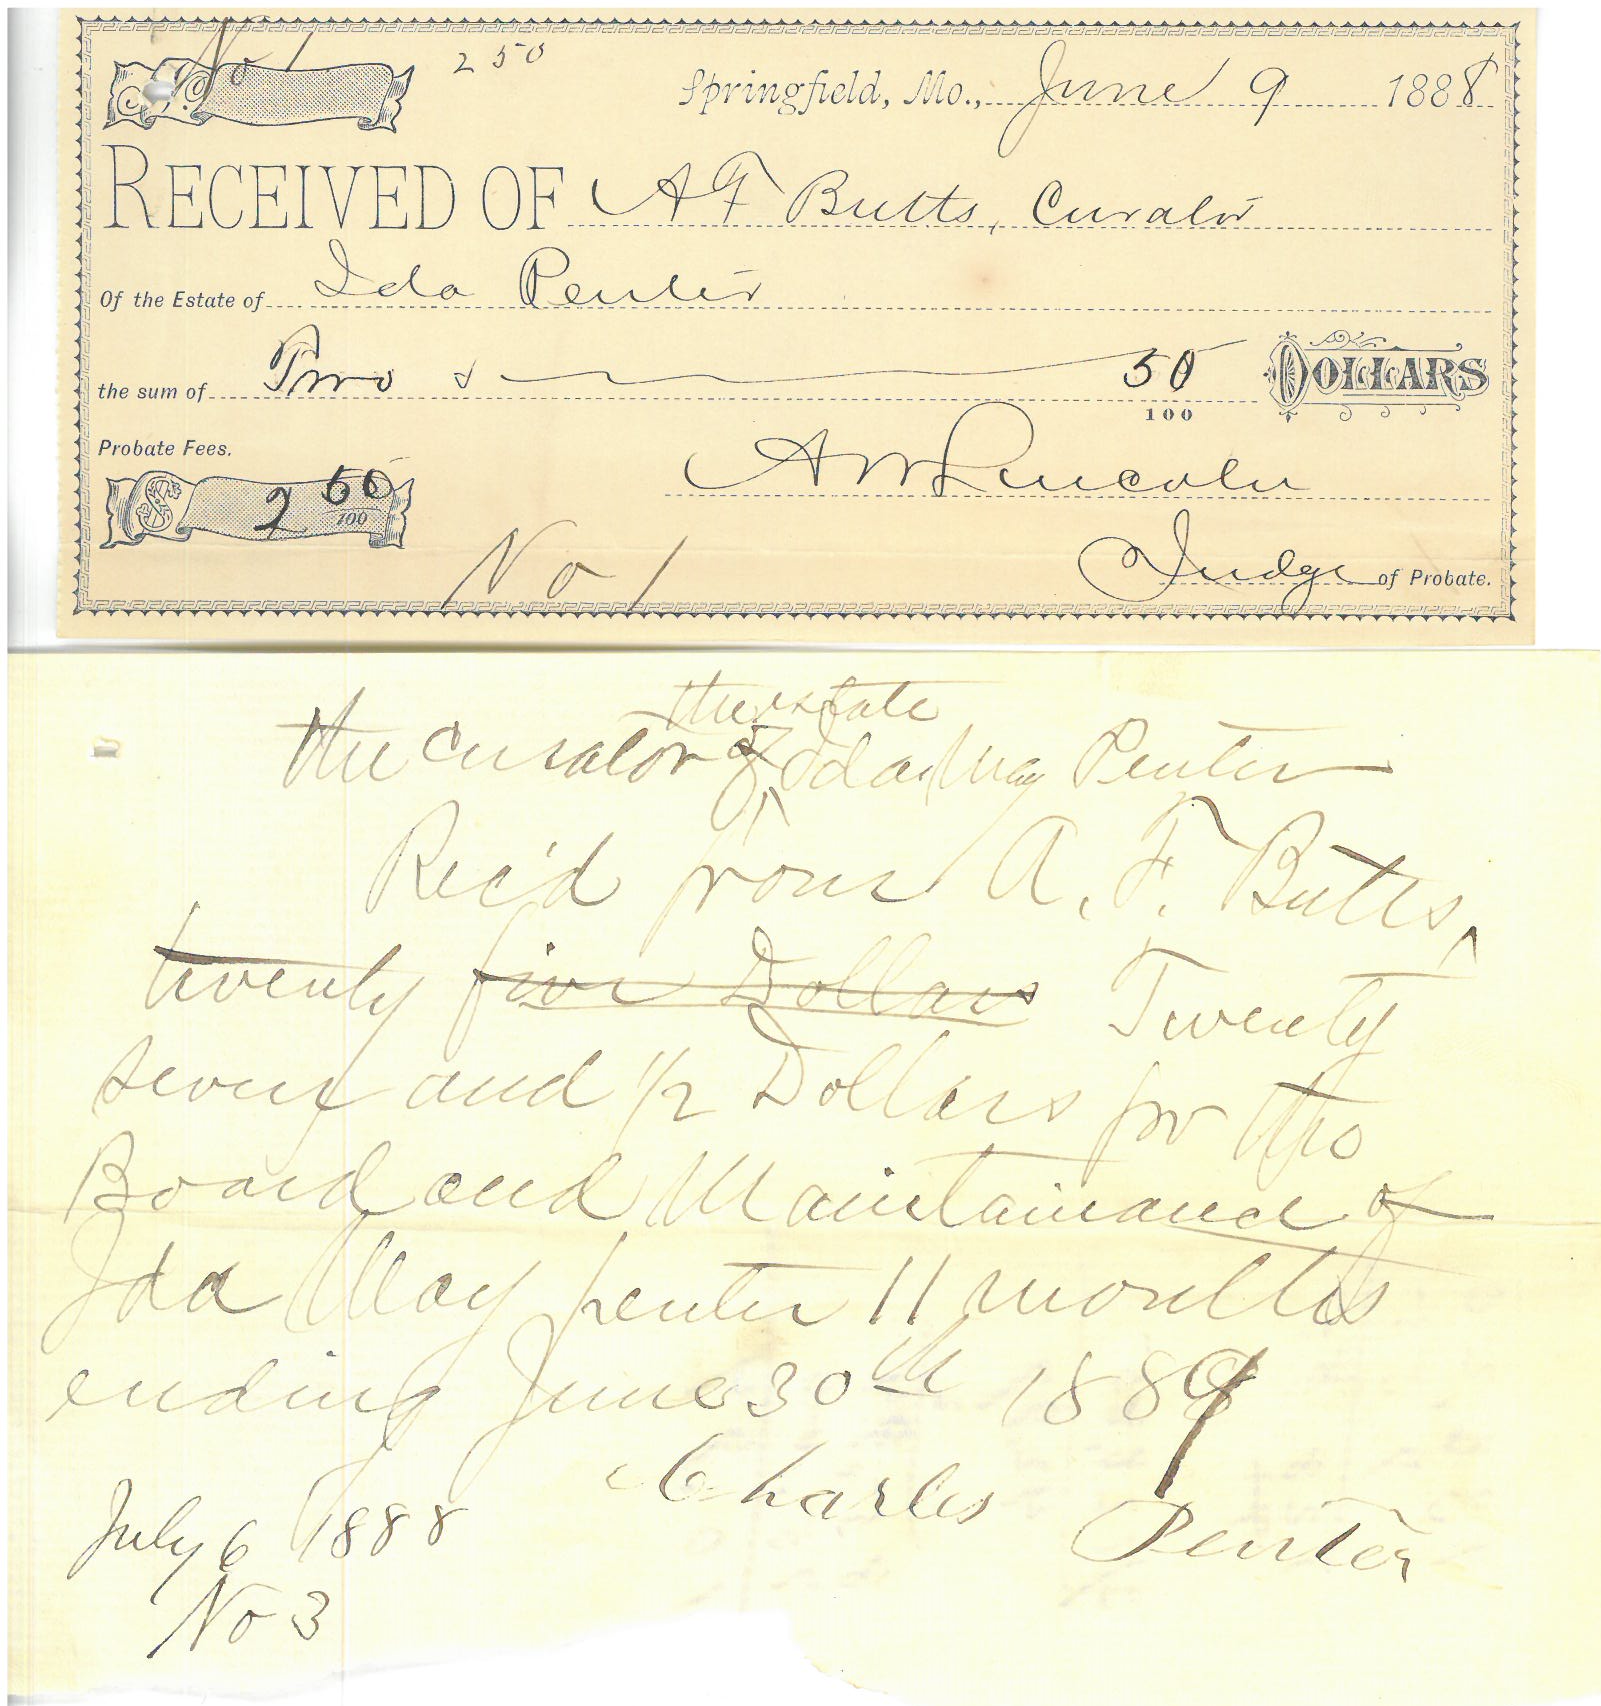 No 1
2 50
Springfield, Mo., June 9 1888
RECEIVED OF A F Butts, Curator
Of the Estate of Ida Penter
the sum of Two & 50/100 DOLLARS
Probate Fees.
$ 2 50/100
A W Lincoln
No 1
Judge of Probate.
the estate
the Curator of ^ Ida May Penter
Rec'd from A. F. Butts, ^
twenty five Dollars Twenty
seven and 1/2 Dollars for the
Board and Maintainance of
Ida May penter 11 months
ending June 30th 1889
Charles Penter
July 6 1888
No 3